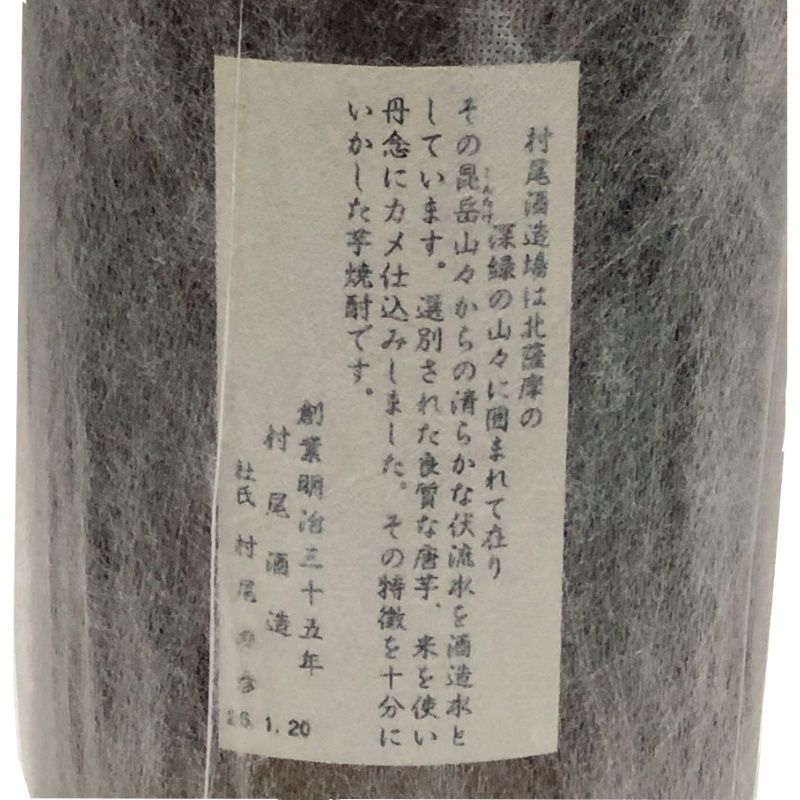 村尾酒造場は北薩摩の
深緑の山々に囲まれて在り
しんたけ
その昆岳山々からの清らかな伏流水を酒造水と
しています。選別された良質な唐芋、米を使い
丹念にカメ仕込みしました。その特徴を十分に
いかした芋焼酎です。
創業明治三十五年
村尾酒造
杜氏 村尾
26.1.20